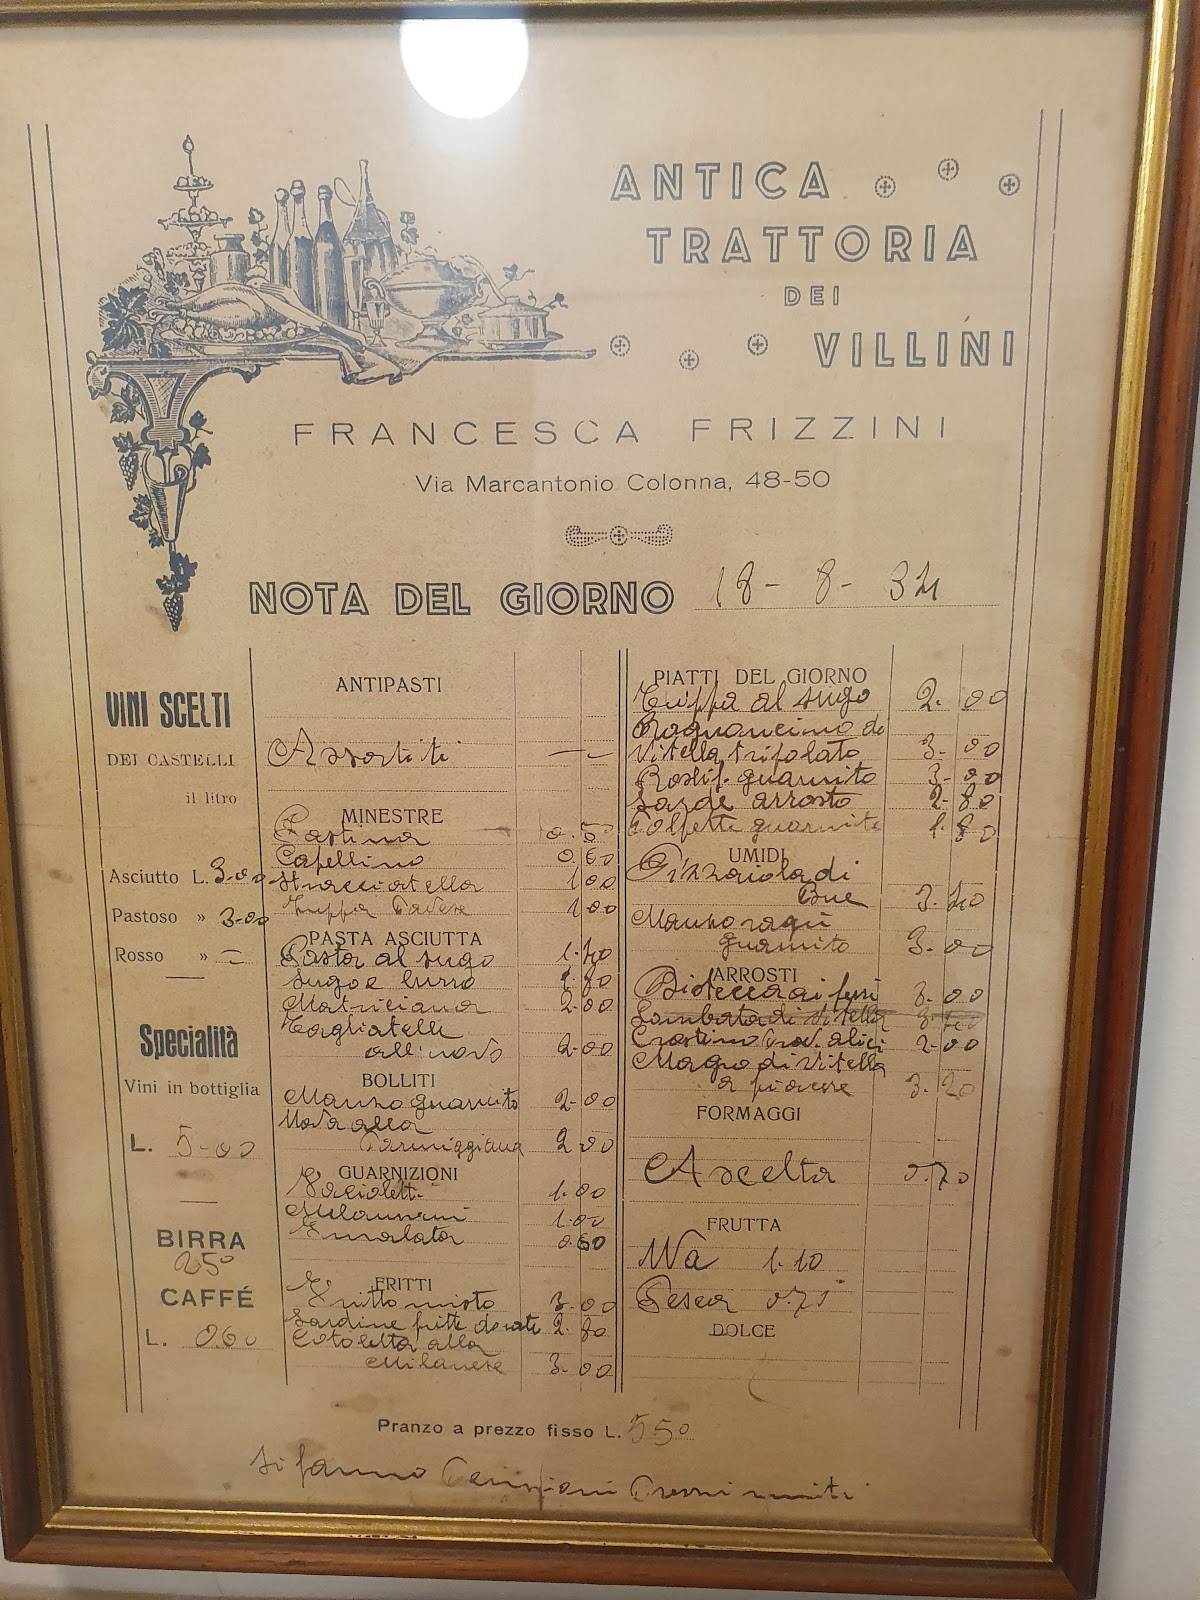 ANTICA
TRATTORIA
DEI
VILLINI
FRANCESCA FRIZZINI
Via Marcantonio Colonna, 48-50
NOTA DEL GIORNO 18-8-34
VINI SCELTI
DEI CASTELLI
il litro
Asciutto L. 3-00
Pastoso » 3-00
Rosso »
Specialità
Vini in bottiglia
L. 5-00
BIRRA
250
CAFFÉ
L. 0.60
ANTIPASTI
Assortiti
MINESTRE
Pastina 0.50
Capellino 0.60
Stracciatella 1.00
Zuppa Pavese 1.00
PASTA ASCIUTTA
Pasta al sugo
Sugo e burro 1.80
Matriciana 2.00
Tagliatelli
all'uovo 2-00
BOLLITI
Manzo guarnito 2-00
alla
Parmiggiana 2.00
GUARNIZIONI
Facioletti 1.00
1.00
Insalata 0.60
FRITTI
Fritto misto 3.00
Sardine fritte dorate 2.80
Cotoletta alla
Milanese 3.00
PIATTI DEL GIORNO
Trippa al sugo 2.00
Rognoncino di
Vitella trifolato 3-00
Rosbif guarnito 3-00
Sarde arrosto 2-80
Polpette guarnite 1.80
UMIDI
Pizzaiola di
Bue
Manzo ragù
guarnito 3-00
ARROSTI
Bistecca ai ferri 3.00
Lombata di vitella
Crostino Prov. alici 2-00
di Vitella
a piacere 3.20
FORMAGGI
A scelta 0.70
FRUTTA
Uva 1.10
Pesca 0.75
DOLCE
Pranzo a prezzo fisso L. 5.50
Si fanno Penzioni Prezzi miti